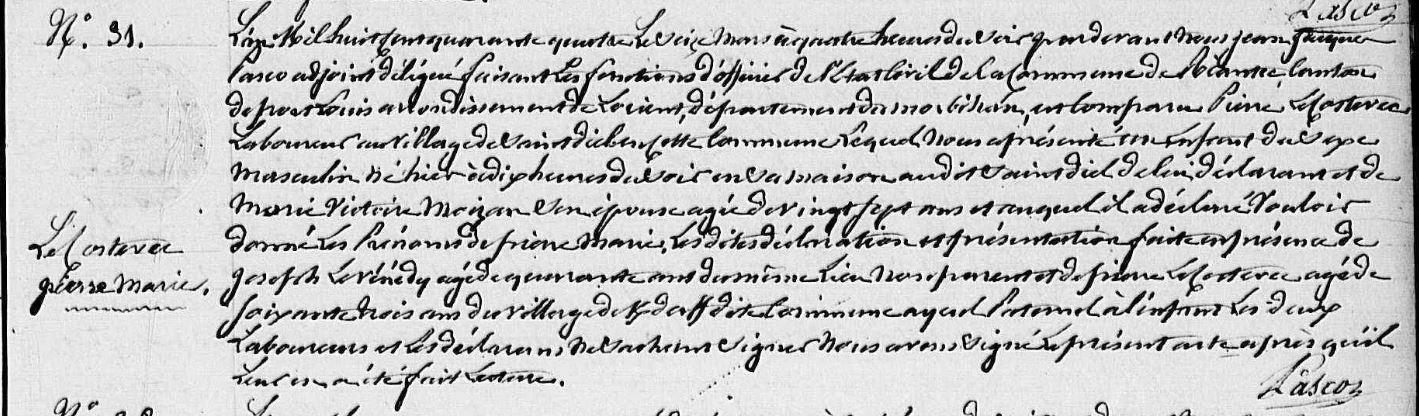 Pascoz
N.° 31.
L'an Mil huit Cent quarante quatre Le Seize Mars à quatre heures du Soir par devant Nous jean jacques
Pasco adjoint délégué faisant Les fonctions d'officier de l'Etat Civil de la Commune de Riantec Canton
de port Louis arrondissement de Lorient, département du morbihan, est Comparu Pierre Le Costevec
Laboureur au Village de Saint diel en Cette Commune Lequel Nous a présenté un Enfant du Sexe
Masculin Né hier à dix heures du Soir en Sa maison au dit Saint diel de lui déclarant et de
Marie Victoire Moizan Son épouse agée de vingt sept ans et auquel il a déclaré Vouloir
donné Les Prénoms de pierre Marie, Les dites déclaration et présentation faite en présence de
Le Costevec
Joseph Le Vénédy agé de quarante ans du même Lieu Non parent et de pierre Le Costevec agé de
pierre Marie.
Soixante trois ans du village de dite Commune ayeul Paternel à l'enfant Les deux
Laboureurs et Les déclarans Ne Sachant Signer Nous avons Signé Le présent acte après qu'il
Leur en a été fait Lecture.
Pascoz
N.°